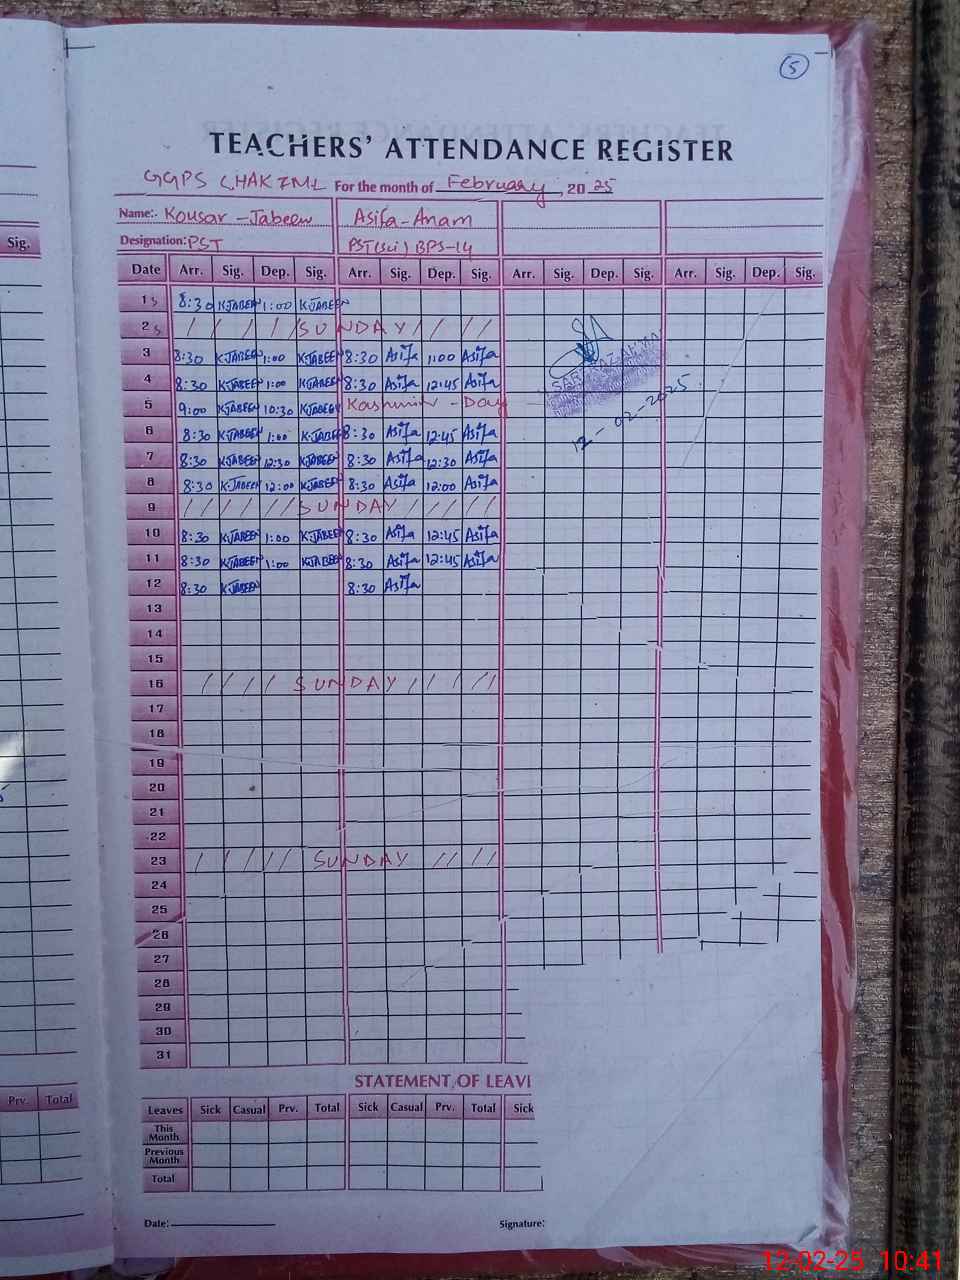 5
TEACHERS' ATTENDANCE REGISTER
GGPS CHAK 7ML For the month of February, 2025
Name:- Kousar-Jabeen Asifa-Anam
Sig. Designation: PST PST(Sci) BPS-14
Date Arr. Sig. Dep. Sig. Arr. Sig. Dep. Sig. Arr. Sig. Dep. Sig. Arr. Sig. Dep. Sig.
1 8:30 K.JABEEN 1:00 K.JABEEN
2 SUNDAY
3 8:30 K.JABEEN 1:00 K.JABEEN 8:30 Asifa 1:00 Asifa
4 8:30 K.JABEEN 1:00 K.JABEEN 8:30 Asifa 12:45 Asifa
5 9:00 K.JABEEN 10:30 K.JABEEN Kashmir - Day
6 8:30 K.JABEEN 1:00 K.JABEEN 8:30 Asifa 12:45 Asifa
7 8:30 K.JABEEN 12:30 K.JABEEN 8:30 Asifa 12:30 Asifa
8 8:30 K.JABEEN 12:00 K.JABEEN 8:30 Asifa 12:00 Asifa
9 SUNDAY
10 8:30 K.JABEEN 1:00 K.JABEEN 8:30 Asifa 12:45 Asifa
11 8:30 K.JABEEN 1:00 K.JABEEN 8:30 Asifa 12:45 Asifa
12 8:30 K.JABEEN 8:30 Asifa
12-02-2025
13
14
15
16 SUNDAY
17
18
19
20
21
22
23 SUNDAY
24
25
26
27
28
29
30
31
STATEMENT OF LEAVE
Prv. Total
Leaves Sick Casual Prv. Total Sick Casual Prv. Total Sick
This Month
Previous Month
Total
Date: Signature:
12-02-25 10:41